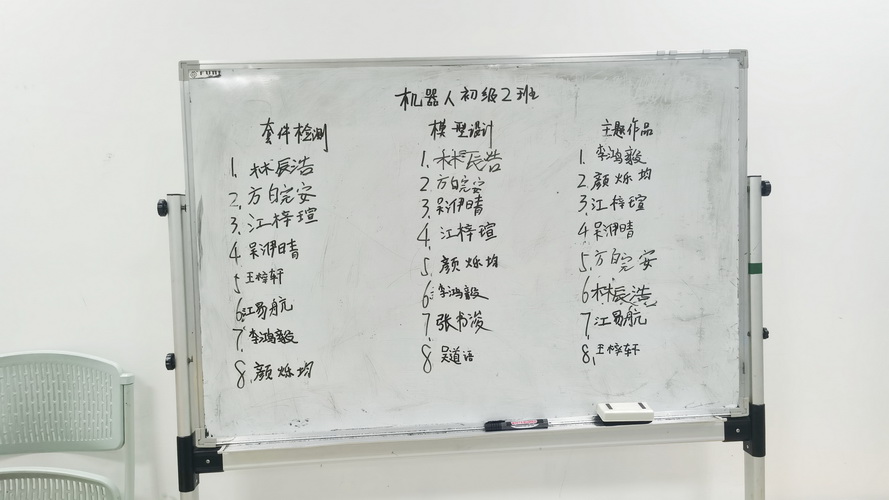 机器人初级2班
套件检测
1. 林辰浩
2. 方皖安
3. 江梓瑄
4 吴渺晴
5 王梓轩
6. 江易航
7. 李鸿毅
8. 颜烁均
模型设计
1. 林辰浩
2 方皖安
3 吴渺晴
4. 江梓瑄
5. 颜烁均
6: 李鸿毅
7 张书浚
8 吴道语
主题作品
1. 李鸿毅
2. 颜烁均
3. 江梓瑄
4 吴渺晴
5. 方皖安
6 林辰浩
7. 江易航
8. 王梓轩